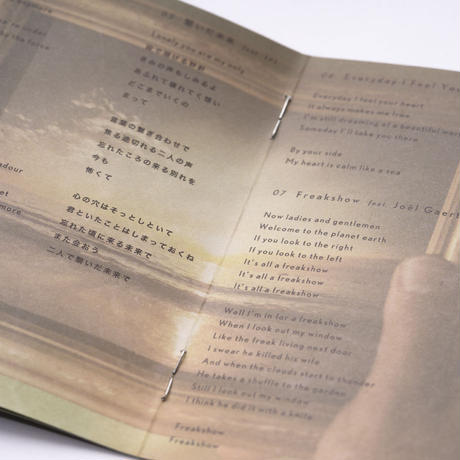 anymore
to render
by the force
adour
et
more
05 繋いだ未来 feat.
Lonely you are my only
きみの声もしみるよ
あふれて壊れてく想い
どこまでいくの
まって
言葉の繋ぎ合わせで
焦る途切れる二人の声
忘れたころの来る別れを
今も
怖くて
心の穴はそっとしといて
君といたことはしまっておくね
忘れた頃に来る未来で
また会おう
二人で繋いだ未来で
06 Everyday I Feel You
Everyday I feel your heart
It always makes me free
I'm still dreaming of a beautiful world
Someday I'll take you there
By your side
My heart is calm like a sea
07 Freakshow feat. Joël Gaert
Now ladies and gentlemen
Welcome to the planet earth
If you look to the right
If you look to the left
It's all a freakshow
It's all a freakshow
It's all a freakshow
Well I'm in for a freakshow
When I look out my window
Like the freak living next door
I swear he killed his wife
And when the clouds start to thunder
He takes a shuffle to the garden
Still I look out my window
I think he did it with a knife
Freakshow
Freakshow